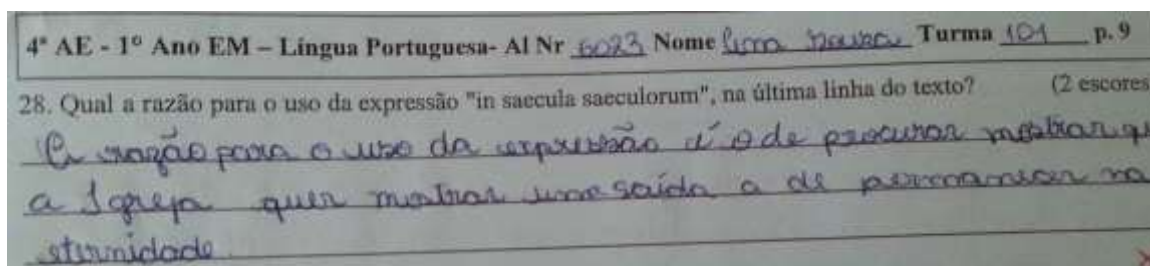 4ª AE - 1º Ano EM – Língua Portuguesa- Al Nr 6023 Nome Lima Turma 101 p. 9
28. Qual a razão para o uso da expressão "in saecula saeculorum", na última linha do texto? (2 escores
A razão para o uso da expressão é o de procurar mostrar qu
a Igreja quer mostrar uma saída a de permanecer na
eternidade